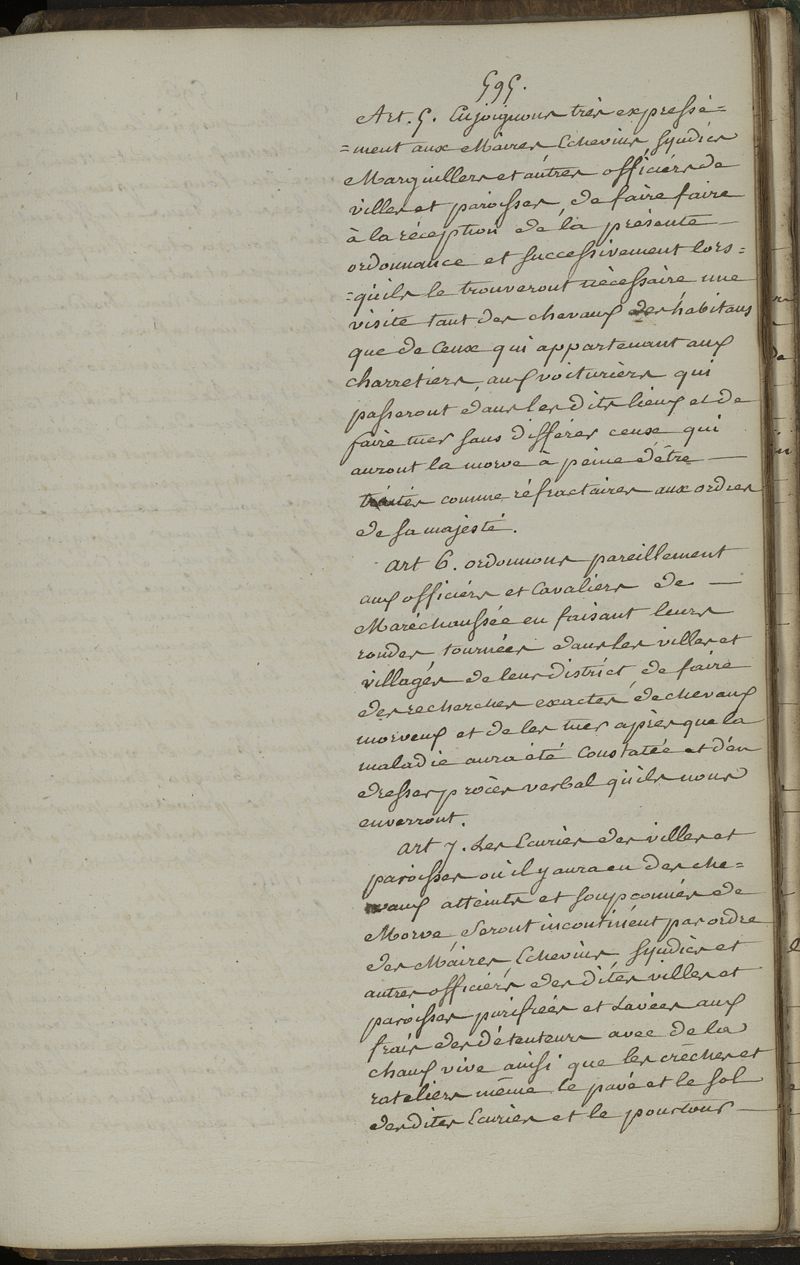 595.
Art. 5. Enjoignons très expressé=
=ment aux Maires Echevins Syndics
Marguillers et autres officiérs de
villes et paroisses, de faire faire
à la réception de la présente —
ordonnance et successivement lors=
=qu'ils le trouveront nécessaire une
visite tant des chevaux des habitans
que de Ceux qui appartenant aux
charretiers, aux voituriérs qui
passeront dans les dits lieux et de
faire tuer sans différer ceux qui
auront la morve à peine d'être —
traités comme réfractaires aux ordres
de sa majesté.
art 6. ordonnons pareillement
aux officiérs et Cavaliers de —
Maréchaussée en faisant leurs
rondes tournées dans les villes et
villagés de leur district de faire
des recherches exactes de chevaux
morveux et de les tuer après que la
maladie aura été Constatée et d'en
dresser procès verbal qu'ils nous
enverront.
art 7. Les Ecuries des villes et
paroisses où il y aura eu des che=
vaux atteints et soupçonnés de
Morve seront incontinént par ordre
des Maires, Echevins, Syndics et
autres officiérs des dites villes et
paroisses purifiées et Lavées aux
frais des détenteurs avec de la
chaux vive ainsi que les crêches et
rateliers même le pavé et le sol
des dites Ecuries et le pourtour —